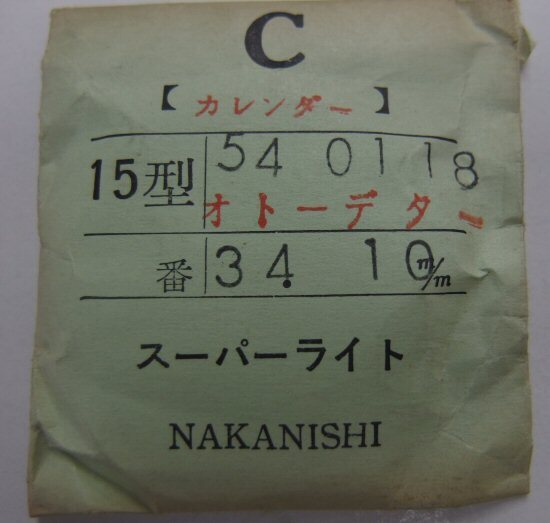 C
【カレンダー】
15型 54 0118
オトーデター
番 34. 10 m/m
スーパーライト
NAKANISHI